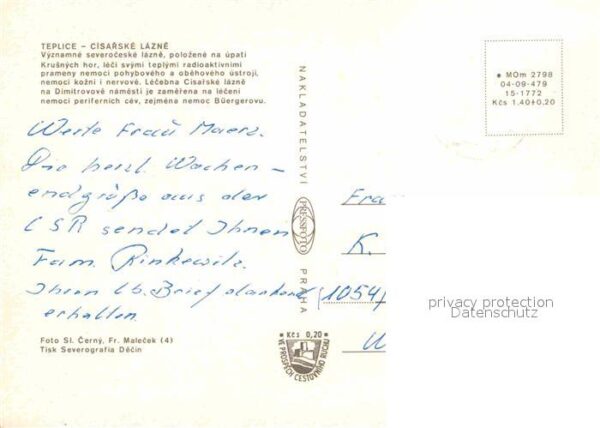 TEPLICE – CÍSAŘSKÉ LÁZNĚ
Významné severočeské lázně, položené na úpatí
Krušných hor, léčí svými teplými radioaktivními
prameny nemoci pohybového a oběhového ústrojí,
nemoci kožní i nervové. Léčebna Císařské lázně
na Dimitrovově náměstí je zaměřena na léčení
nemocí periferních cév, zejména nemoc Büergerovu.
Werte Frau Maerz.
herzl. Wochen-
endgrüße aus der
ČSR sendet Ihnen
Fam. Rinkewitz.
Ihren lb. Brief dankend
erhalten.
Foto Sl. Černý, Fr. Maleček (4)
Tisk Severografia Děčín
NAKLADATELSTVÍ
PRESSFOTO
PRAHA
Kčs 0,20
VE PROSPĚCH CESTOVNÍHO RUCHU
MOm 2798
04-09-479
15-1772
Kčs 1.40+0,20
Fra
K.
(1054)
privacy protection
Datenschutz